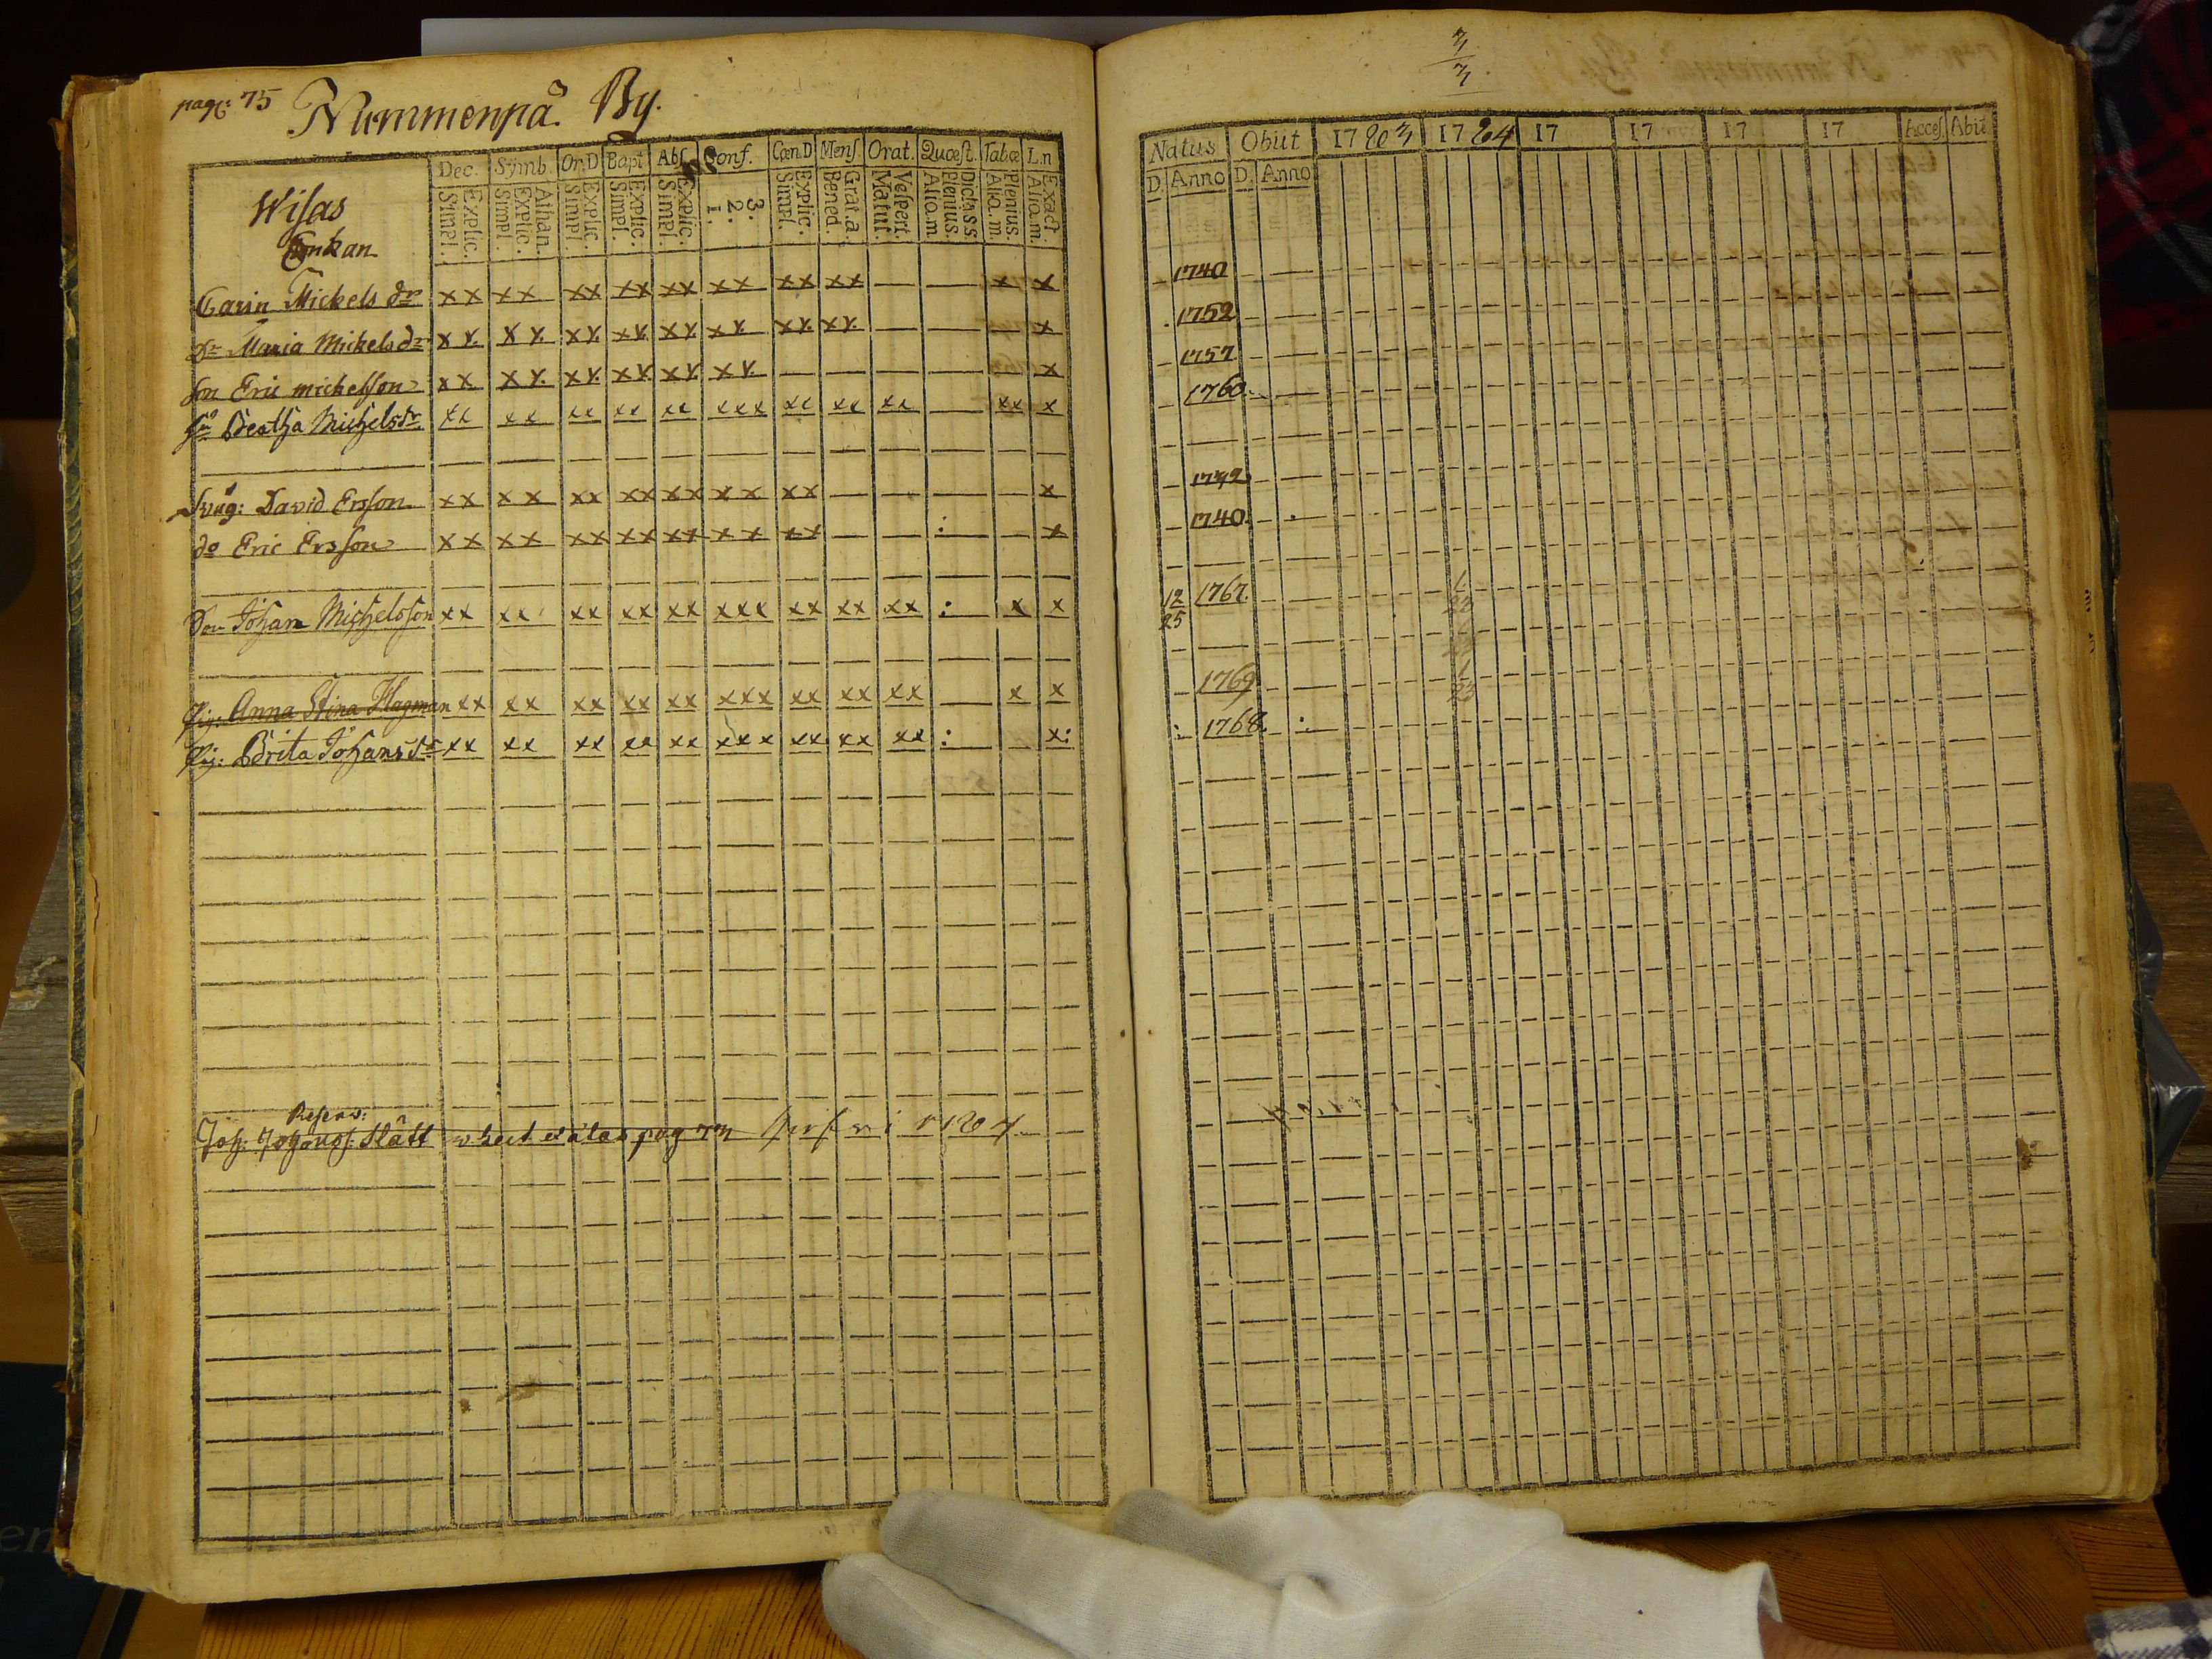 pag: 75 Nummenpä By.
Dec. Symb. Or.D Bapt Abs Conf. Cœn.D Mens Orat. Quæst. Tabæ L.n
Simpl. Explic. Simpl. Explic. Athan. Simpl. Explic. Simpl. Explic. Simpl. Explic. 1. 2. 3. Simpl. Explic. Bened. Grat.a. Matut. Vespert. Alio.m Plenius. Dicta S S. Alio.m. Plenius. Alio.m. Exact.
Wisas
Enkan
Carin Mickels dr xx xx xx xx xx xx xx xx x x
Dr Maria Mickels dr xx xx xx xx xx xx xx xx x
Son Eric mickelsson xx xx xx xx xx xx x
Beatha Michelsdr xx xx xx xx xx xxx xx xx xx xx x
Svåg: David Ersson xx xx xx xx xx xx xx x
do Eric Ersson xx xx xx xx xx xx xx x
Son Johan Michelsson xx xx xx xx xx xxx xx xx xx x x
Pig: Anna Stina Hagman xx xx xx xx xx xxx xx xx xx x x
Pig: Brita Johansdr xx xx xx xx xx xxx xx xx xx x
Reserv:
Joh: Johans: Slätt
pag
Natus Obiit 17 17 17 17 17 17 Acces. Abiit
D. Anno D. Anno
1740
1752
1757
1760
1740
12 1767
25
1769
1768